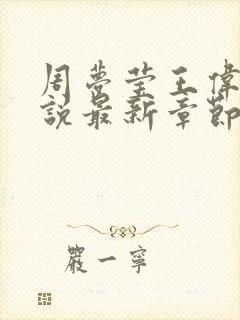 周夢莹王偉
說最新章節
嚴一寧